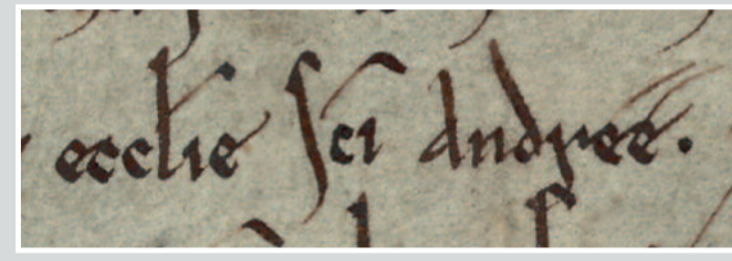 ecclie sci andree.